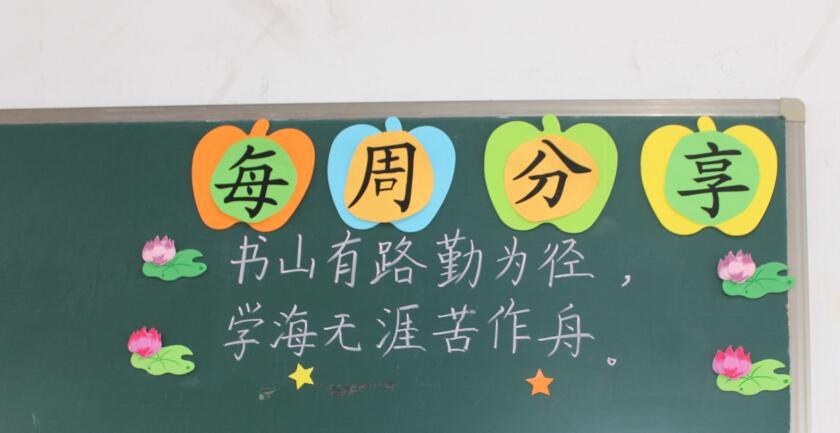 每周分享
书山有路勤为径，
学海无涯苦作舟。